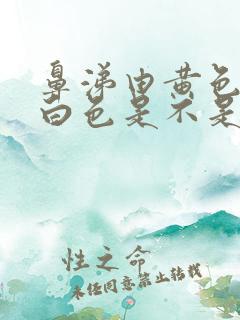 鼻涕由黄色
白色是不是
性之命
未经同意禁止转载